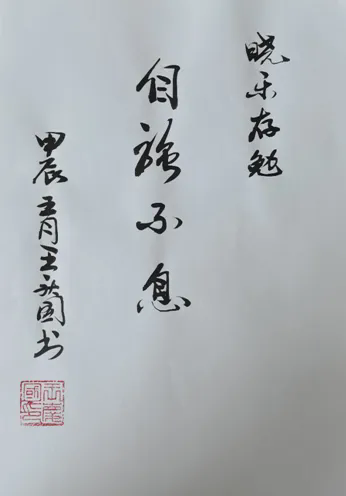 晓乐存勉
自強不息
甲辰五月王国书